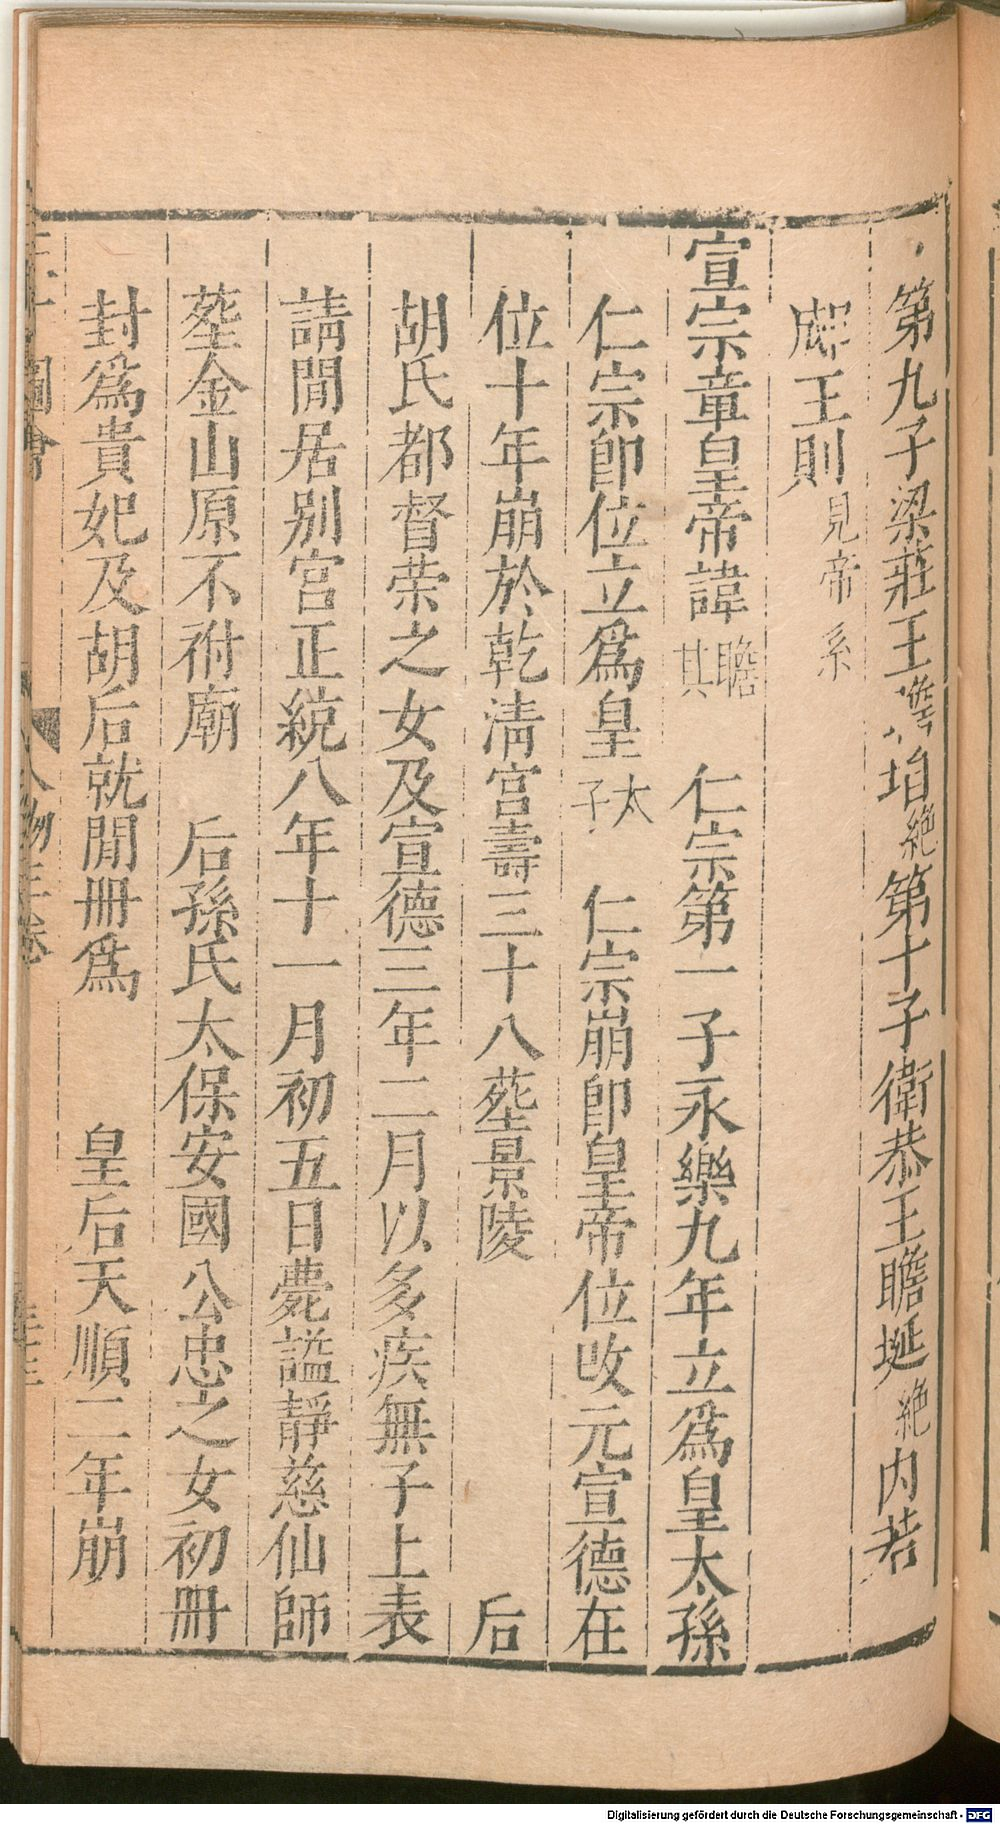 第九子梁莊王瞻垍絶第十子衛恭王瞻埏絶内若
王則見帝系
宣宗章皇帝諱瞻其 仁宗第一子永樂九年立爲皇太孫
仁宗卽位立爲皇太子 仁宗崩卽皇帝位攺元宣德在
位十年崩於乾淸宮壽三十八塟景陵 后
胡氏都督荣之女及宣德三年二月以多疾無子上表
請閒居别宫正統八年十一月初五日薨謚靜慈仙師
塟金山原不祔廟 后孫氏太保安國公忠之女初冊
封爲貴妃及胡后就閒冊爲 皇后天順二年崩
圖會 人物三卷
Digitalisierung gefördert durch die Deutsche Forschungsgemeinschaft - DFG